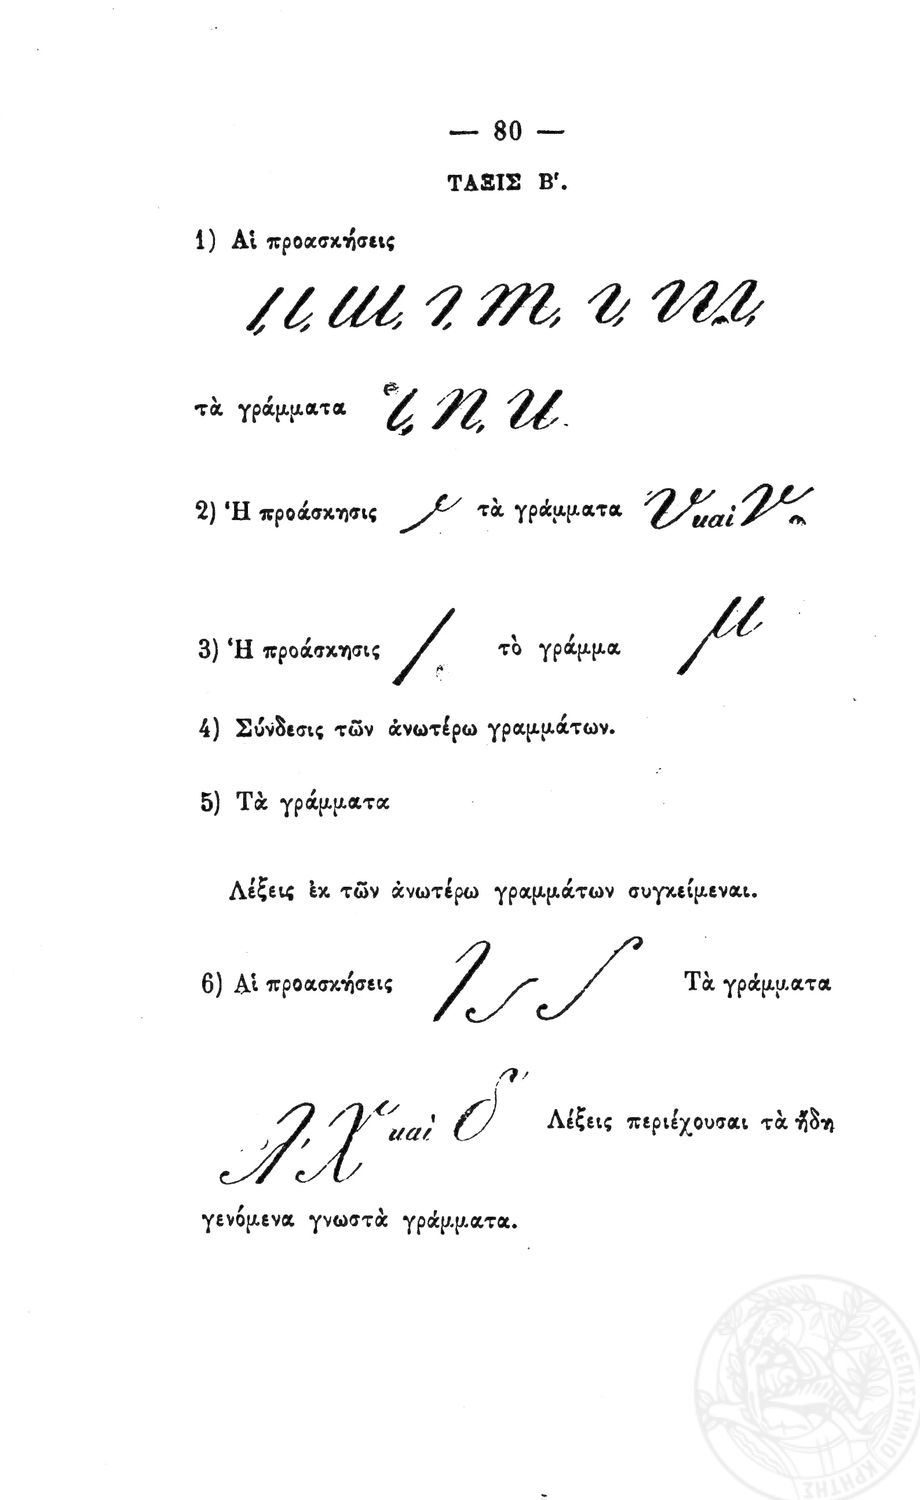 — 80 —
ΤΑΞΙΣ Β'.
1) Αἱ προασκήσεις
τὰ γράμματα ι, η, υ.
2) Ἡ προάσκησις τὰ γράμματα υ καὶ ν
3) Ἡ προάσκησις τὸ γράμμα μ
4) Σύνδεσις τῶν ἀνωτέρω γραμμάτων.
5) Τὰ γράμματα
Λέξεις ἐκ τῶν ἀνωτέρω γραμμάτων συγκείμεναι.
6) Αἱ προασκήσεις Τὰ γράμματα
λ, χ καὶ δ Λέξεις περιέχουσαι τὰ ἤδη
γενόμενα γνωστὰ γράμματα.
ΠΑΝΕΠΙΣΤΗΜΙΟ ΚΡΗΤΗΣ